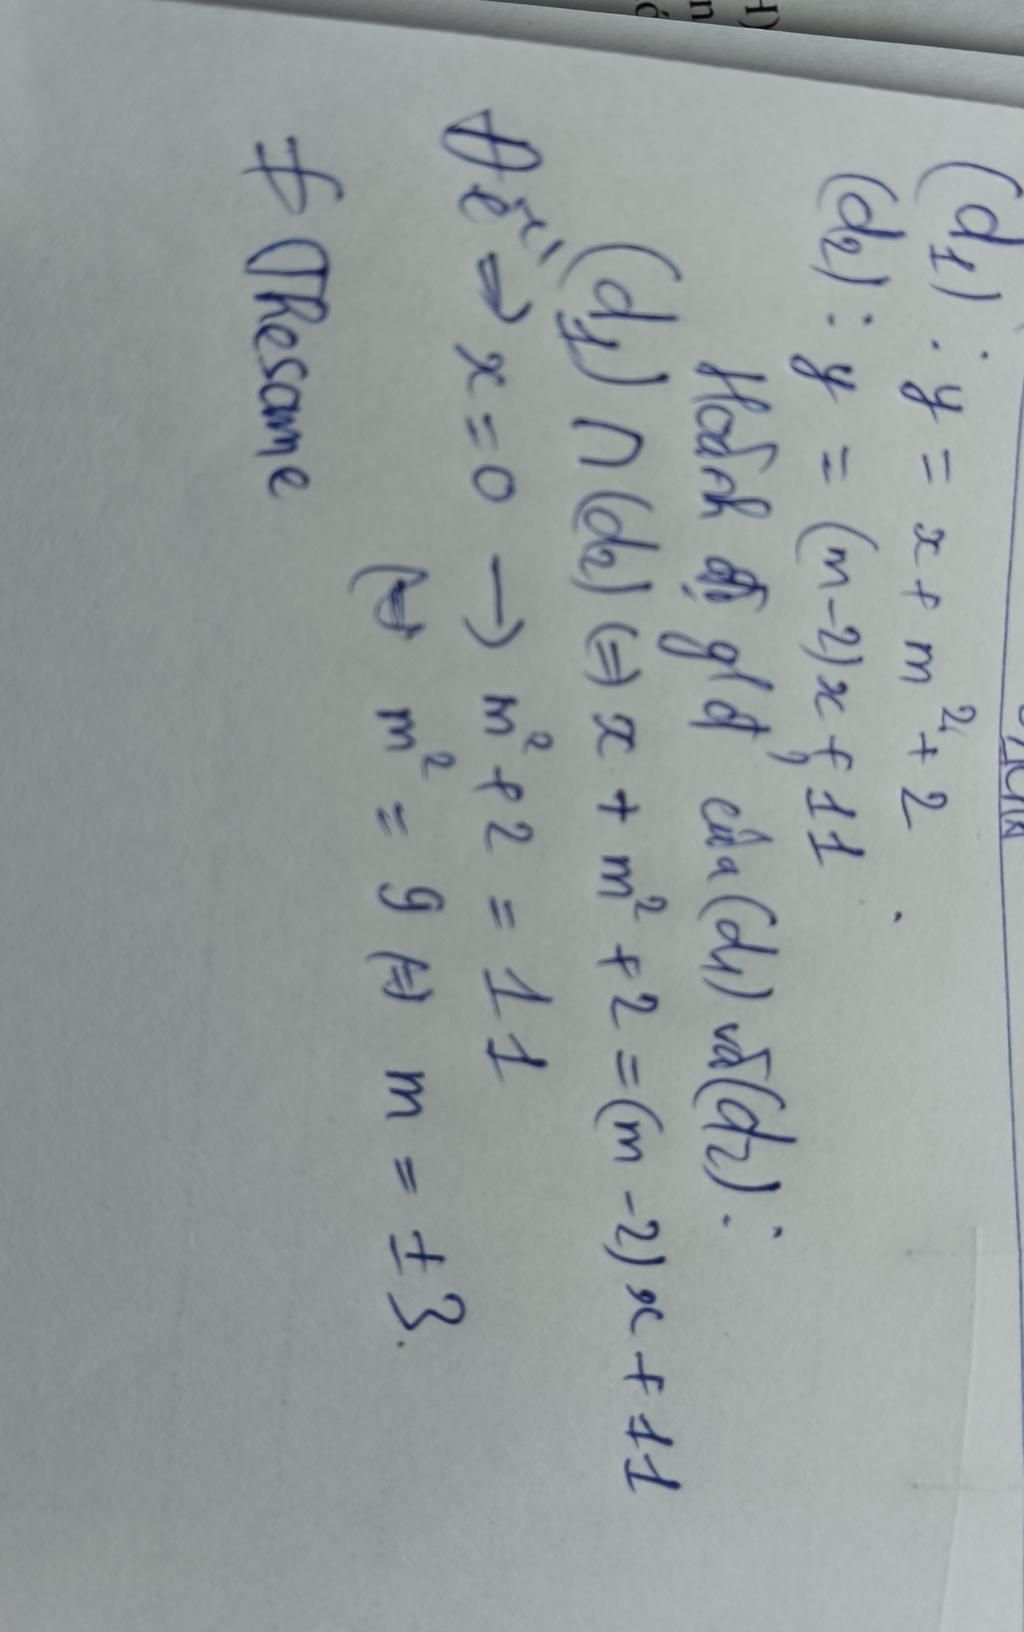 (d₁) : y = x + m² + 2
(d₂) : y = (m-2)x + 11
Hoành độ gđ của (d₁) và (d₂) :
(d₁) ∩ (d₂) (=) x + m² + 2 = (m - 2) x + 11
=> x = 0 -> m² + 2 = 11
m² = 9 (=) m = ± 3.
≠ Thesame